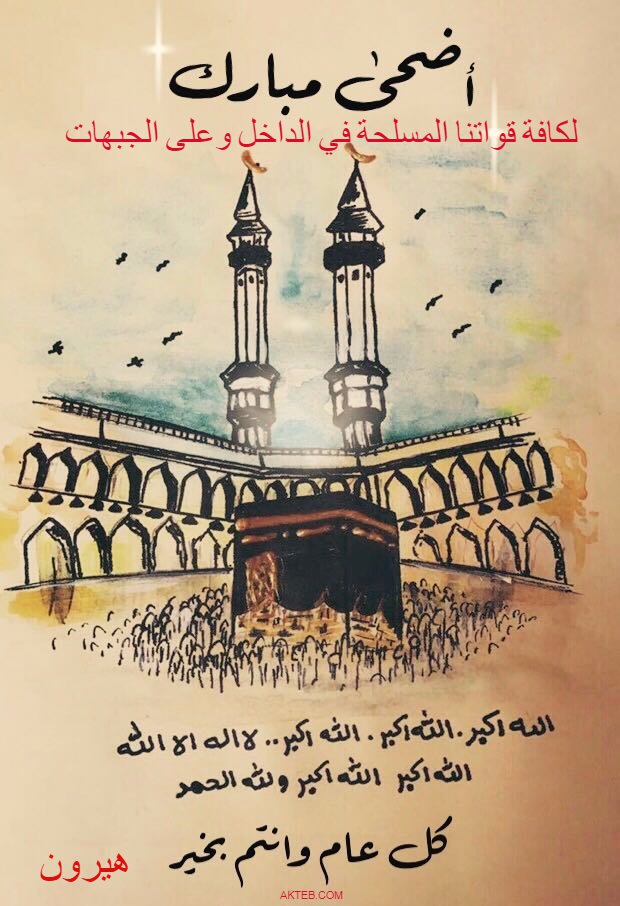 أضحىٰ مبارك
لكافة قواتنا المسلحة في الداخل وعلى الجبهات
الله اكبر. الله اكبر. الله اكبر.. لا اله الا الله
الله اكبر الله اكبر ولله الحمد
كل عام وانتم بخير
هيرون
AKTEB.COM